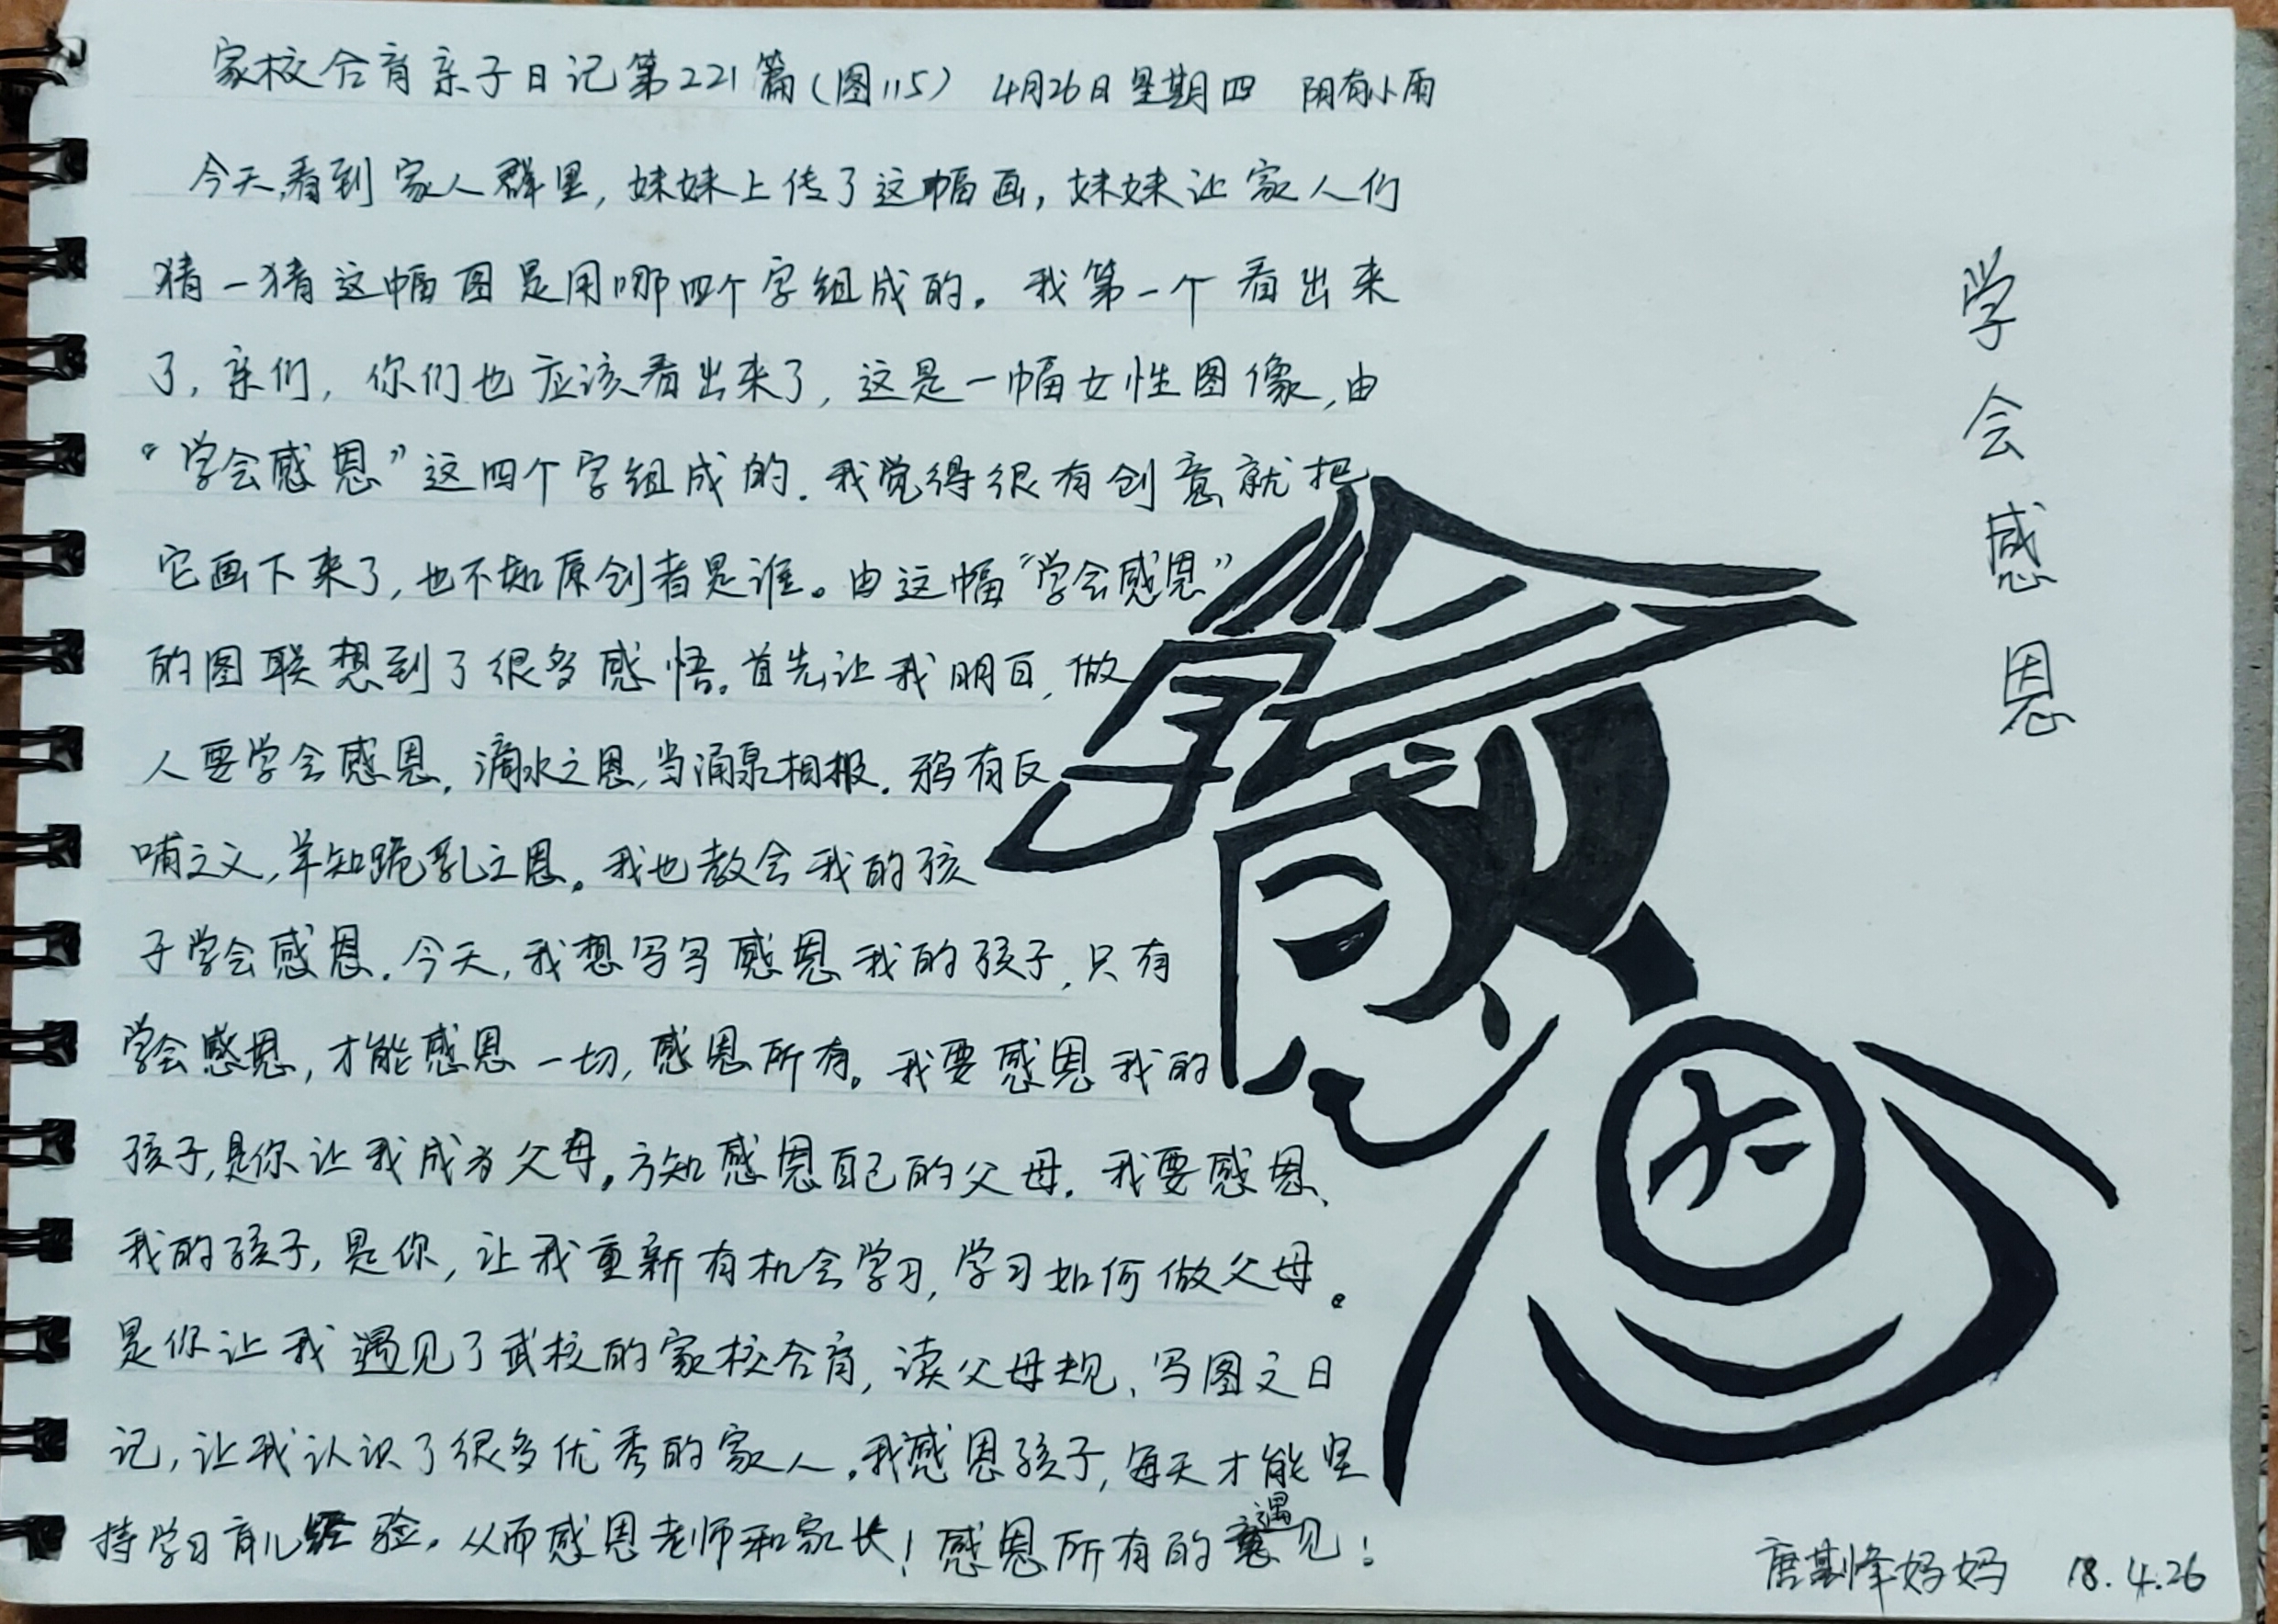 家校合育亲子日记第221篇(图115) 4月26日星期四 阴有小雨
今天,看到家人群里,妹妹上传了这幅画,妹妹让家人们
猜一猜这幅图是用哪四个字组成的。我第一个看出来
了,亲们,你们也应该看出来了,这是一幅女性图像,由
“学会感恩”这四个字组成的.我觉得很有创意就把
它画下来了,也不知原创者是谁。由这幅“学会感恩”
的图联想到了很多感悟。首先让我明白,做
人要学会感恩.滴水之恩,当涌泉相报.鸦有反
哺之义,羊知跪乳之恩。我也教会我的孩
子学会感恩.今天,我想写写感恩我的孩子,只有
学会感恩,才能感恩一切,感恩所有。我要感恩我的
孩子,是你让我成为父母。方知感恩自己的父母.我要感恩、
我的孩子,是你,让我重新有机会学习,学习如何做父母。
是你让我遇见了武校的家校合育,读父母规、写图文日
记,让我认识了很多优秀的家人.我感恩孩子,每天才能坚
持学习育儿经验.从而感恩老师和家长!感恩所有的遇见!
学会感恩
学会感恩
唐基峰妈妈 18.4.26